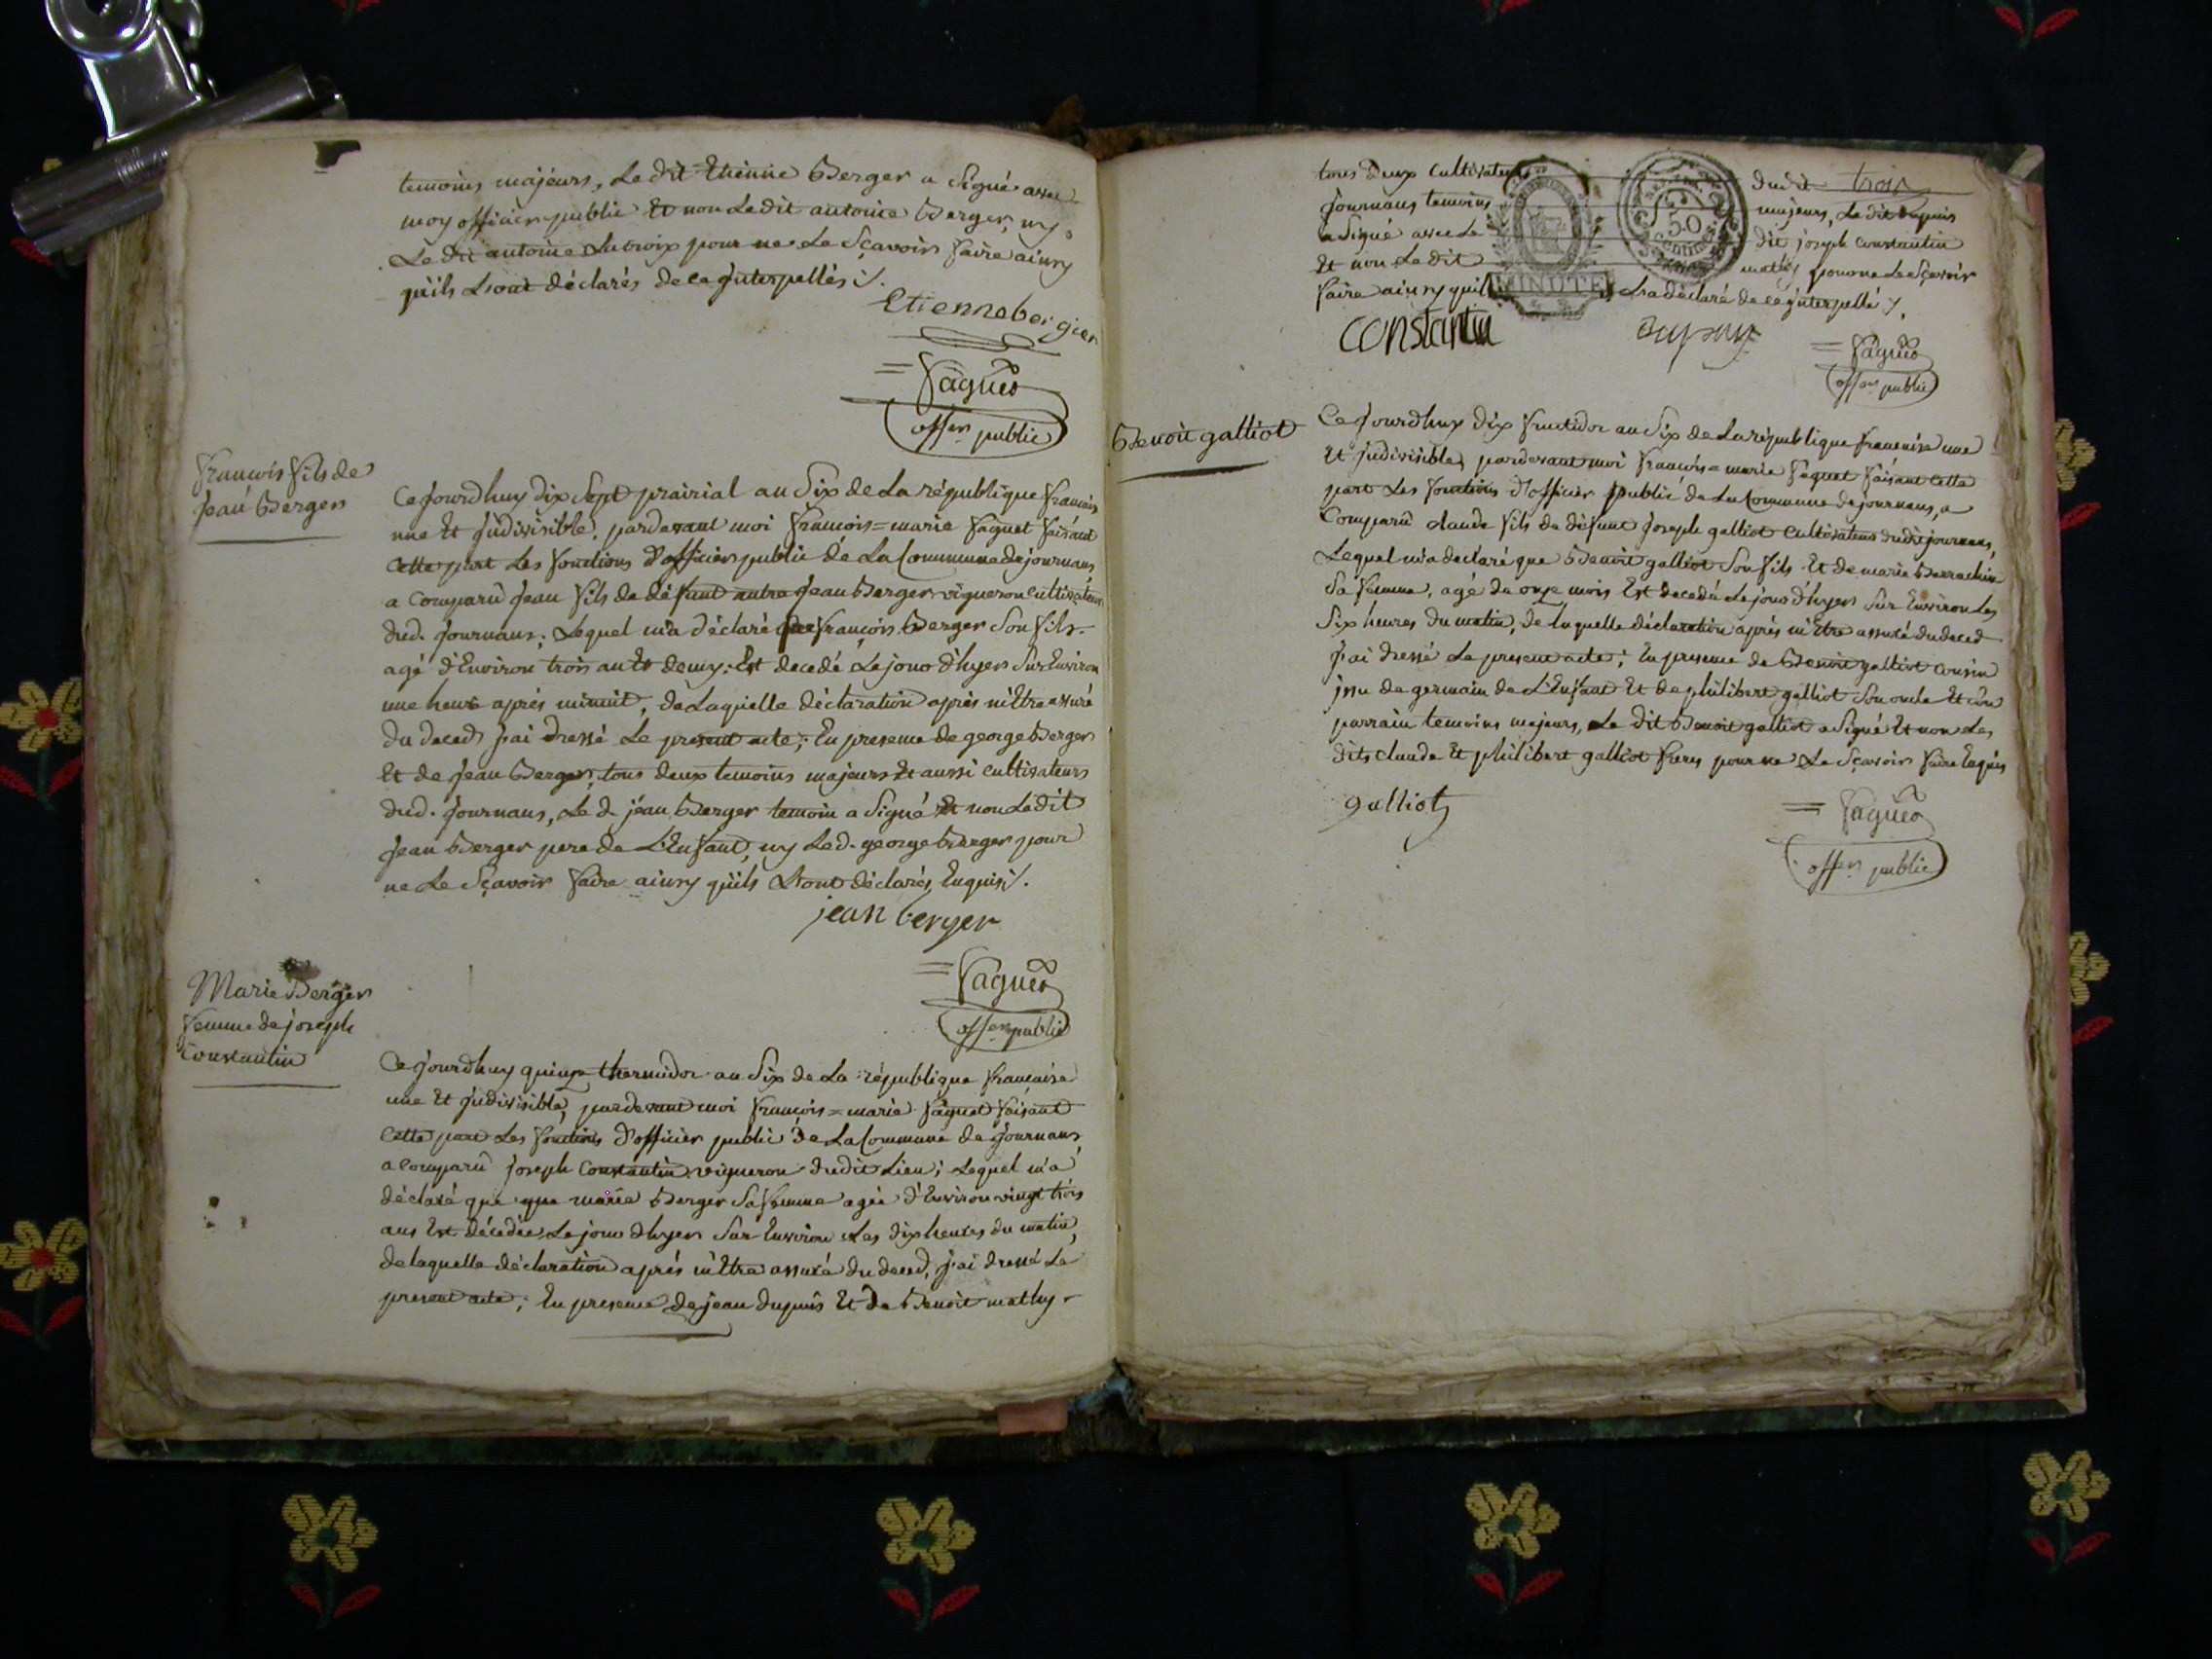 temoins majeurs, Le dit Etienne Berger a Signé avec
moy officier public Et non Ledit antoine Berger, ny
Le dit antoine Lacroix pour ne Le Sçavoir faire ainsy
qu'ils L'ont déclarés de ce Interpellés /.
Etiennebergier
= faguet
offer public
françois fils de
Jean Berger
Ce Jourdhuy dix Sept prairial an Six de La république française
une Et Indivisible, pardevant moi françois=marie faguet faisant
Cette part Les fonctions d'officier public de La Commune de journans
a Comparû Jean fils de défunt autre Jean Berger vigneron cultivateur
dud. Journans, Lequel m'a déclaré que françois Berger Son fils
agé d'Environ trois an Et demy. Est decedé Le jour d'hyer Sur Environ
une heure après minuit, de Laquelle déclaration après m'être assuré
du deced j'ai dressé Le present acte; En presence de george Berger
Et de Jean Berger, tous deux temoins majeurs Et aussi cultivateurs
dud. Journans, Le d. jean Berger temoin a Signé Et non Ledit
Jean Berger pere de L'Enfant, ny Led. george Berger pour
ne Le Sçavoir faire ainsy qu'ils L'ont déclarés, Enquis /.
jean berger
= faguet
offer public
Marie Berger
femme de joseph
Constantin
Ce Jourdhuy quinze thermidor an Six de La république française
une Et Indivisible, pardevant moi françois=marie faguet faisant
Cette part Les fonctions d'officier public de La Commune de Journans
a Comparû joseph Constantin vigneron dudit Lieu; Lequel m'a
déclaré que que marie Berger Sa femme agée d'Environ vingt trois
ans Est décedée Le jour d'hyer Sur Environ Les dix heures du matin,
de laquelle déclaration après m'être assuré du deced, j'ai dressé Le
present acte; En presence de jean dupuis Et de Benoit mathy
tous deux Cultivateurs dudit trois
Journans temoins majeurs, Le dit dupuis
a Signé avec Le dit joseph Constantin
Et non Le dit mathy pour ne Le Sçavoir
faire ainsy quil L'a déclaré de ce Interpellé /.
50
Centimes
MINUTE
Constantin
dupuis
= faguet
offer public
Benoit galliot
Ce Jourdhuy dix fructidor an Six de La république française une
Et Indivisible, pardevant moi françois=marie faguet faisant Cette
part Les fonctions d'officier public de La Commune de journans, a
Comparû claude fils de défunt Joseph galliot Cultivateur dudit journans,
Lequel m'a declaré que Benoit galliot Son fils Et de marie
Sa femme, agé de onze mois Est decedé Le jour d'hyer Sur Environ Les
Six heures du matin, de laquelle déclaration après m'être assuré du deced
j'ai dressé Le present acte; En presence de Benoit galliot cousin
issu de germain de L'Enfant Et de philibert galliot Son oncle Et Son
parrain temoins majeurs, Le dit Benoit galliot a Signé Et non Les
dits claude Et philibert galliot freres pour ne Le Sçavoir faire Enquis
galliot
= faguet
offer public